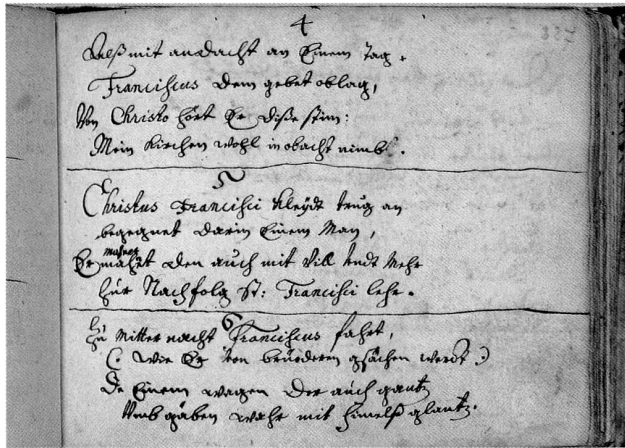 4
327
Alß mit andacht an Einem tag,
Franciscus dem gebet oblag,
Von Christo hört Er diße stim:
Mein Kirchen wohl in obacht nimb.
5
Christus Francisci kleydt trug an
begegnet darin Einem Man,
mahnet
Er mahnt den auch mit vill undt Mehr
Zur Nachfolg St: Francisci lehr.
6
Zu Mitternacht Franciscus fahrt,
(: wie Er von brüederen gsächen werdt :)
Einem wagen der auch gantz
Vmbgäben wahr mit himelß glantz.